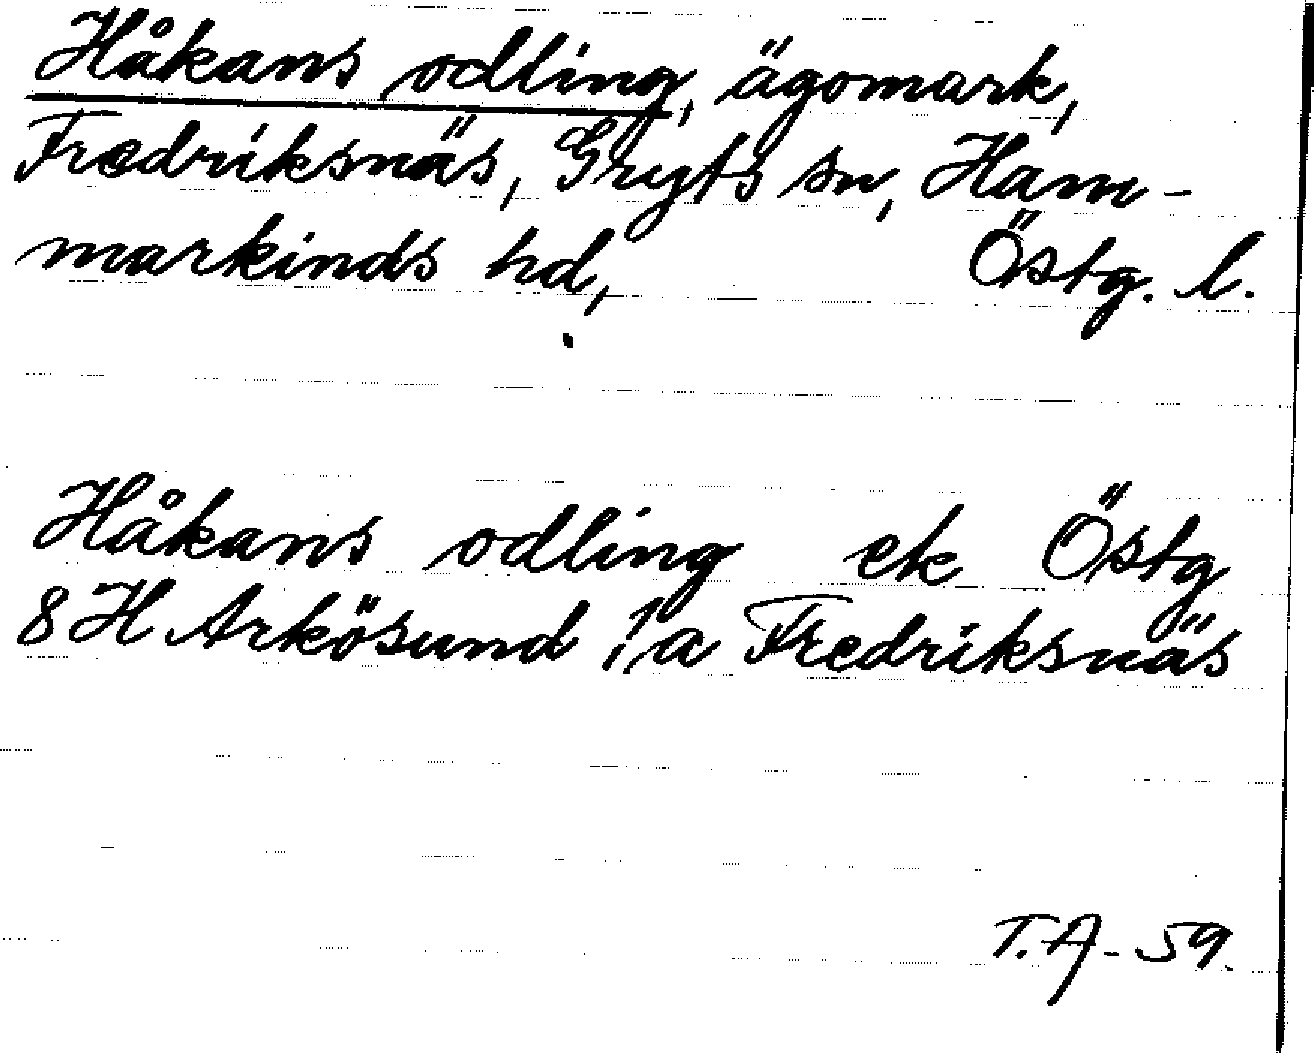 Håkans odling, ägomark,
Fredriksnäs, Gryts sn, Ham-
markinds hd, Östg. l.
Håkans odling ek Östg
8H Arkösund 1a Fredriksnäs
T.A-59.